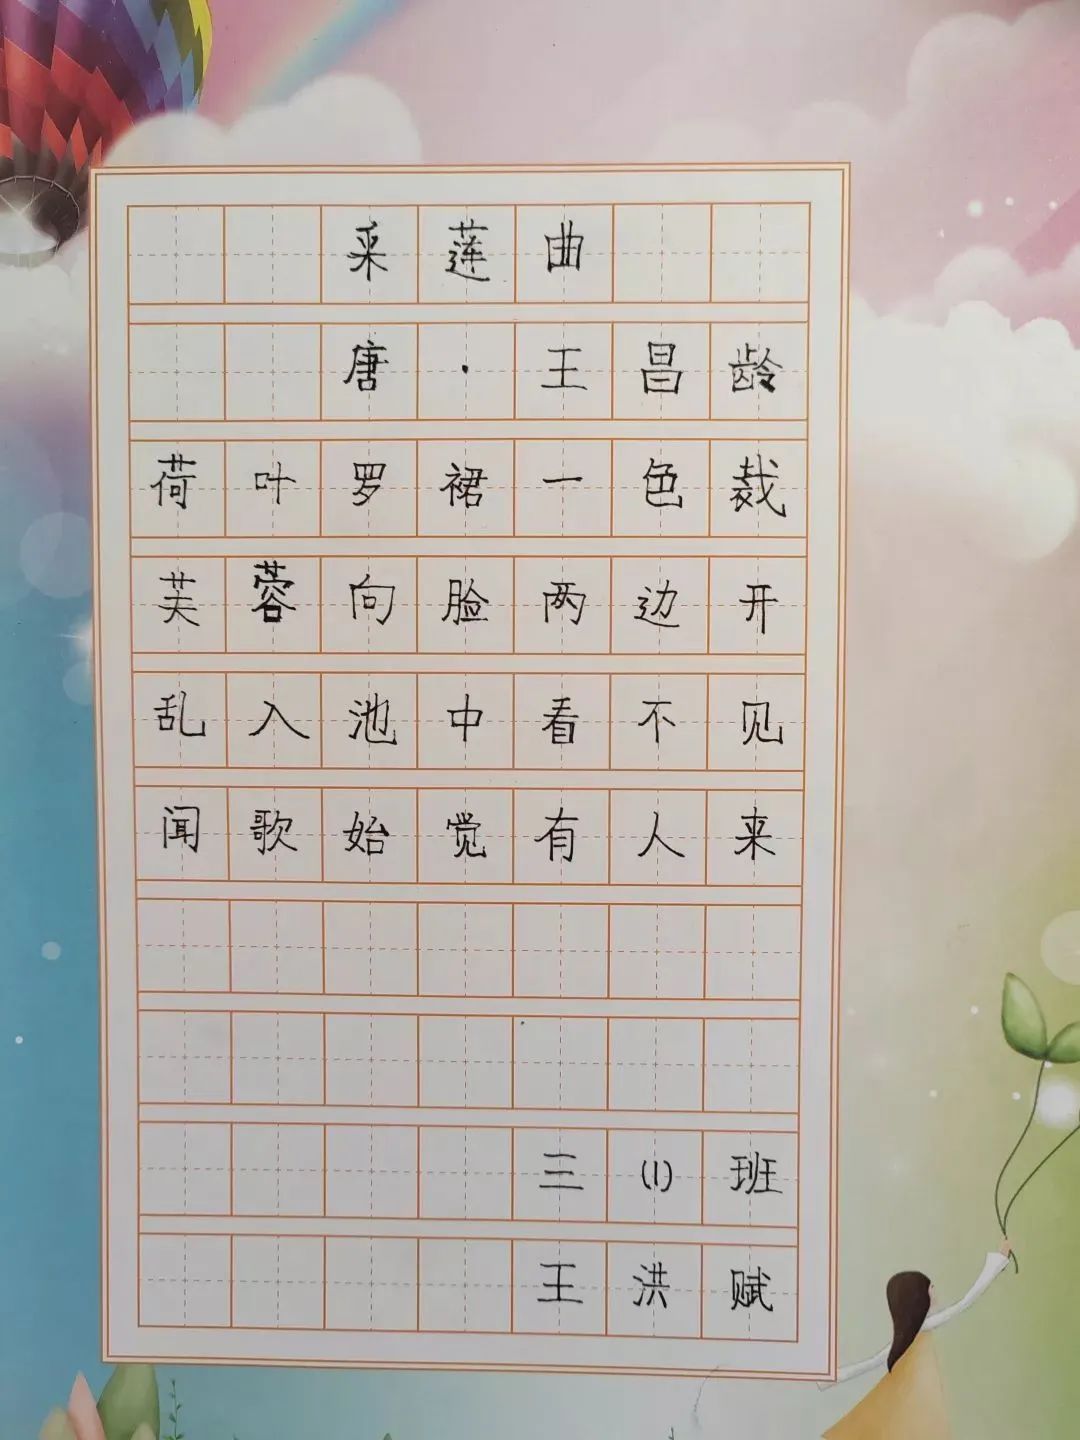 采莲曲
唐·王昌龄
荷叶罗裙一色裁
芙蓉向脸两边开
乱入池中看不见
闻歌始觉有人来
三(1)班
王洪赋